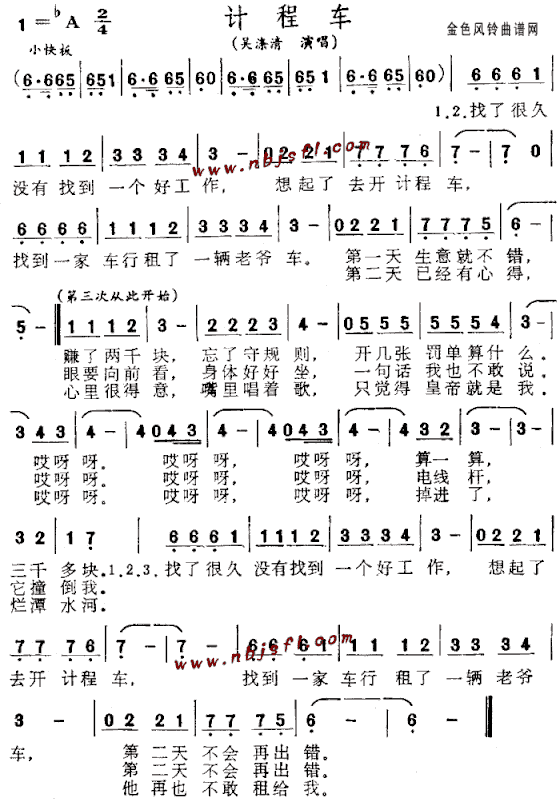 计 程 车
1=♭A 2/4
(吴涤清 演唱)
金色风铃曲谱网
小快板
(6·665 | 651 | 6·665 | 60 | 6·665 | 651 | 6·665 | 60) | 6661 |
1.2.找了很久
11 12 | 33 34 | 3 - | 02 21 | 77 76 | 7 - | 7 0 |
没有 找到 一个 好工 作, 想起了 去开 计程 车,
www.nbjsfl.com
6666 | 1112 | 3334 | 3 - | 0221 | 7775 | 6 - |
找到一家 车行租了 一辆老爷 车。 第一天 生意就不 错,
第二天 已经有心 得,
(第三次从此开始)
5 - | 1112 | 3 - | 2223 | 4 - | 0555 | 5554 | 3 - |
赚了两千 块, 忘了守规 则, 开几张 罚单算什 么。
眼要向前 看, 身体好好 坐, 一句话 我也不敢 说。
心里很得 意, 嘴里唱着 歌, 只觉得 皇帝就是 我。
3 43 | 4 - | 4 043 | 4 - | 4 043 | 4 - | 4 32 | 3 - | 3 - |
哎呀 呀。 哎呀 呀, 哎呀 呀, 算一 算,
哎呀 呀。 哎呀 呀, 哎呀 呀, 电线 杆,
哎呀 呀。 哎呀 呀, 哎呀 呀, 掉进 了,
3 2 | 1 7 | 6661 | 1112 | 3334 | 3 - | 0221 |
三千 多块。1.2.3.找了很久 没有找到 一个好工 作, 想起了
它撞 倒我。
烂潭 水河。
77 76 | 7 - | 7 - | 66 61 | 11 12 | 33 34 |
去开 计程 车, 找到 一家 车行 租了 一辆 老爷
www.nbjsfl.com
3 - | 02 21 | 77 75 | 6 - | 6 - ‖
车, 第二天 不会 再出 错。
第二天 不会 再出 错。
他再也 不敢 租给 我。